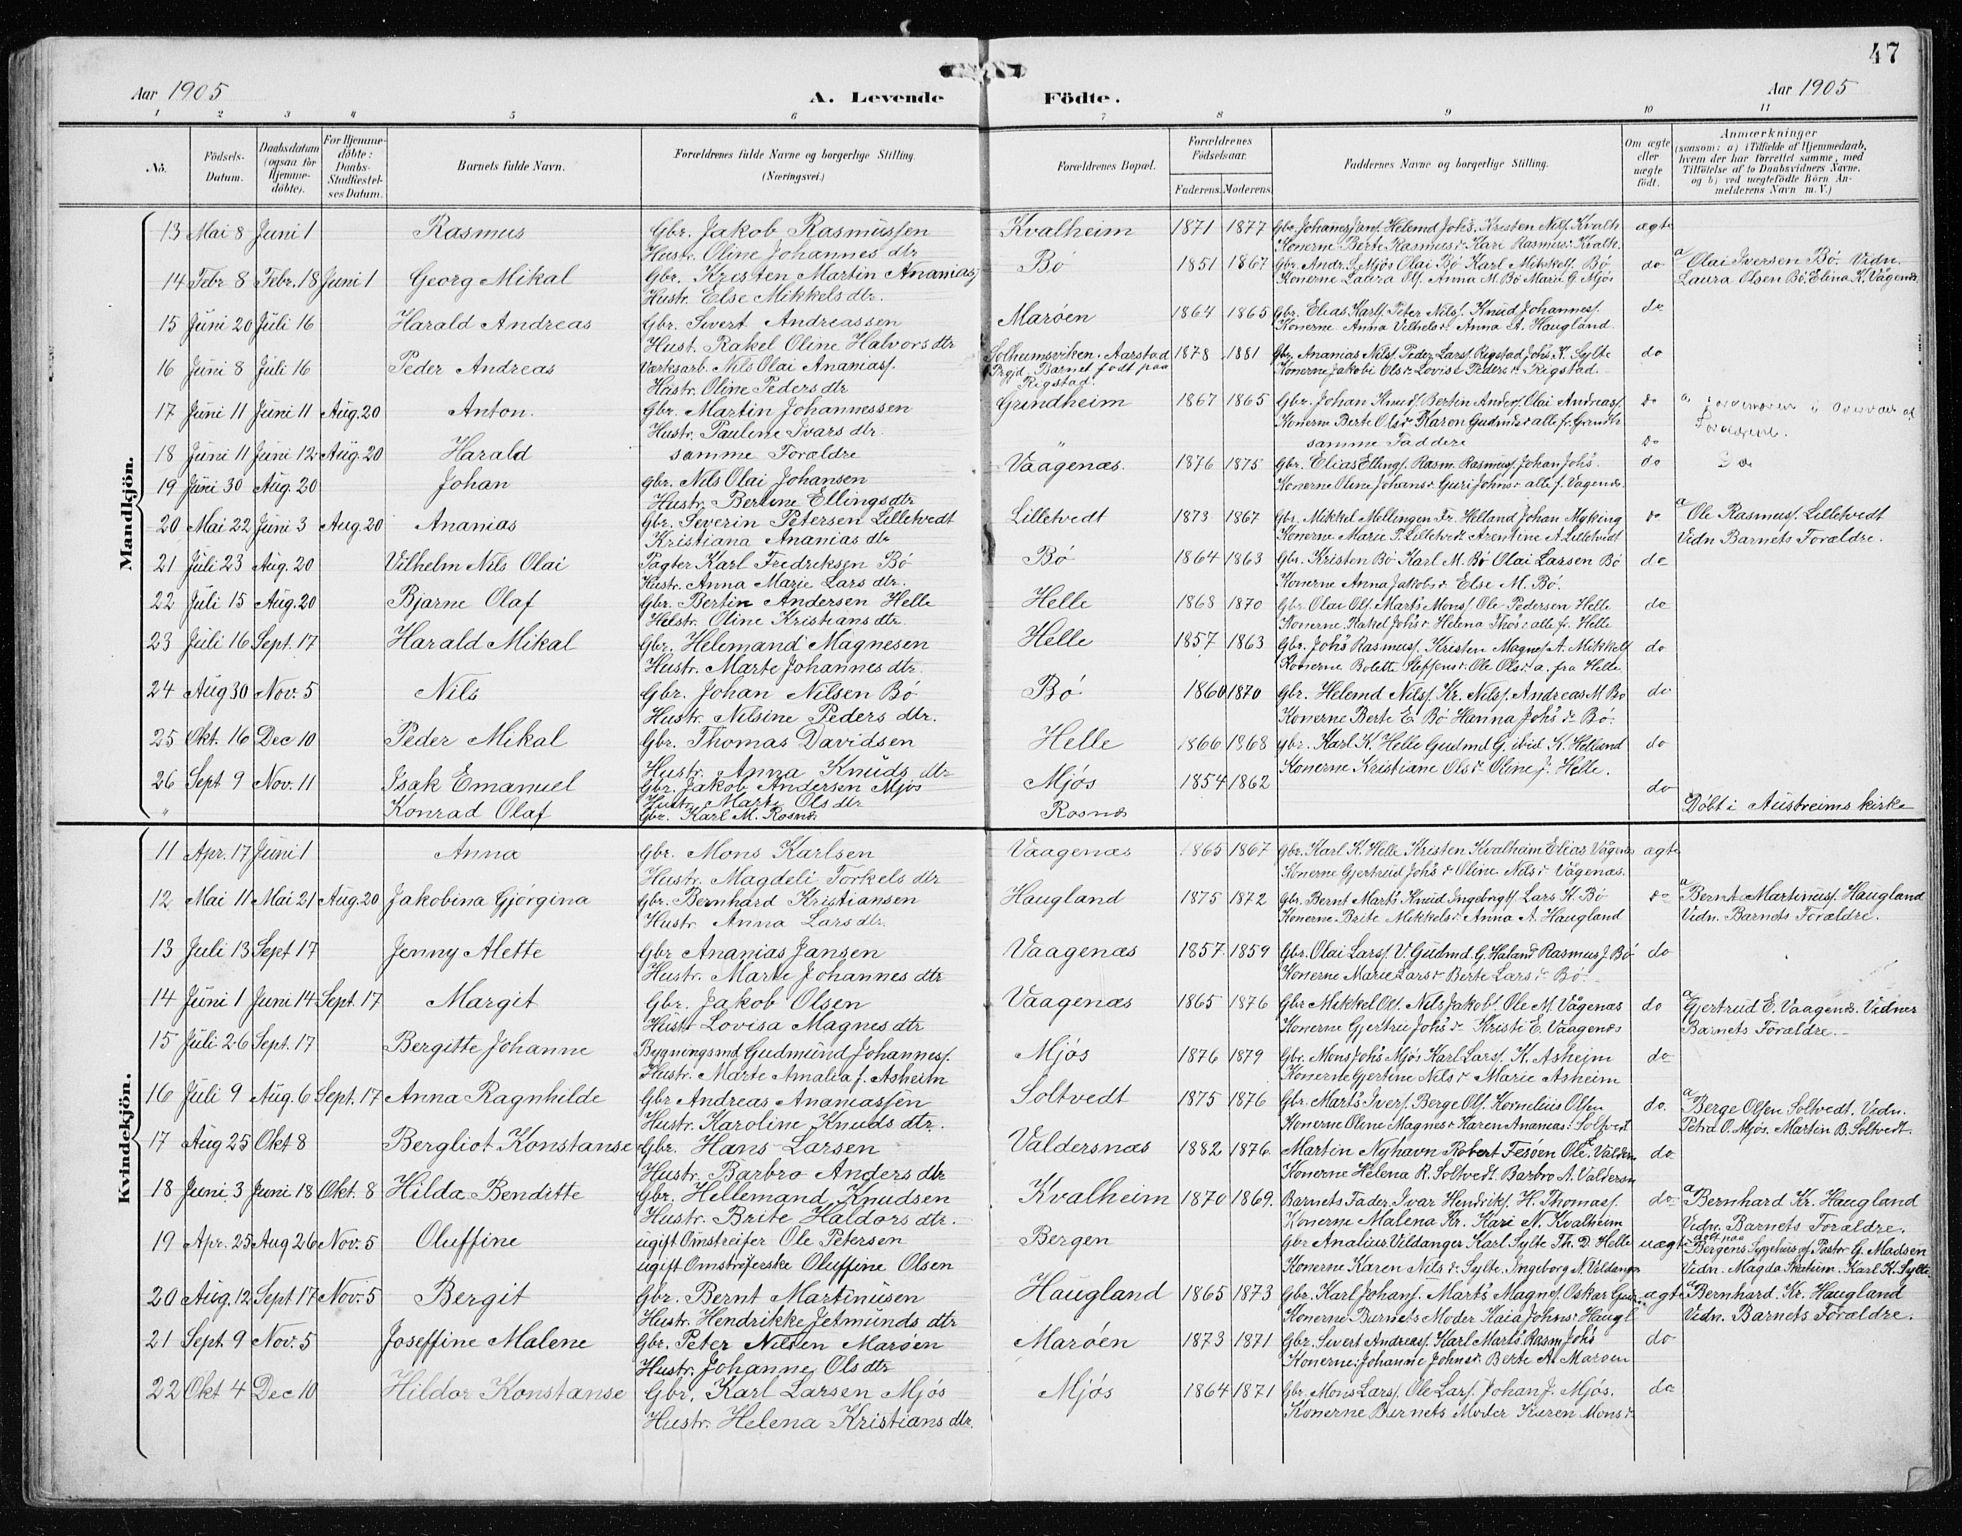 47
Aar 1905 A. Levende Födte. Aar 1905
1 2 3 4 5 6 7 8 9 10 11
No. Födsels-Datum. Daabsdatum (ogsaa for Hjemme-döbte). For Hjemme-döbte: Daabs-Stadfæstel-ses Datum. Barnets fulde Navn. Forældrenes fulde Navne og borgerlige Stilling. (Næringsvei.) Forældrenes Bopæl. Forældrenes Födselsaar. Faderens. Moderens. Faddernes Navne og borgerlige Stilling. Om ægte eller uægte födt. Anmærkninger (saasom: a) i Tilfælde af Hjemmedaab, hvem der har forrettet samme, med Tilföielse af to Daabsvidners Navne, og b) ved uægtefödte Börn An-melderens Navn m. V.)
Mandkjön.
13 Mai 8 Juni 1 Rasmus Gbr. Jakob Rasmussen Kvalheim 1871 1877 Gbr. Helemd Johs. Kristen Nils. Kvalh. ægte
Hustr. Oline Johannes dtr Konerne Berte Rasmus Kari Rasmus Kvalh.
14 Febr 8 Febr. 18 Juni 1 Georg Mikal Gbr. Kristen Martin Ananias Bö 1851 1867 Gbr. Andr. S. Mjös Olai Bö Karl Mikkels. Bö do a Olai Iversen Bö. Vidn.
Hustr. Else Mikkels dtr. Konerne Laura Ols. Anna M. Bö Marie G. Mjös Laura Olsen Bö. Elina K. Vågenæs
15 Juni 20 Juli 16 Harald Andreas Gbr. Sivert Andreassen Maröen 1864 1865 Gbr. Elias Karls. Peter Nils. Knud Johannes. do
Hust. Rakel Oline Halvors dtr Konerne Anna Vilhels Anna A. Haugland.
16 Juni 8 Juli 16 Peder Andreas Værksarb. Nils Olai Ananiass. Solheimsviken. Aarstad Prgjd. Barnet født paa Rigstad. 1878 1881 Gbr. Ananias Nils. Peder Lars. Rigstad Johs. K. Sylte do
Hustr. Oline Peders dtr Konerne Jakobi Ols Lovise Peders Rigstad.
17 Juni 11 Juni 11 Aug. 20 Anton. Gbr. Martin Johannessen Grindheim 1867 1865 Gbr. Johan Knuds. Bertin Anders. Olai Andreas. do a
Hustr. Pauline Ivars dtr. Konerne Berte Ols Karen Gudmds alle fr. Grindh.
18 Juni 11 Juni 12 Aug. 20 Harald samme Forældre " samme Faddere do Do
19 Juni 30 Aug. 20 Johan gbr. Nils Olai Johansen Vaagenæs. 1876 1875 Gbr. Elias Ellings. Rasm. Rasmus. Johan Johs. do
Hustr. Bertine Ellings dtr Konerne Oline Johans Guri Johns alle f. Vagenæs.
20 Mai 22 Juni 3 Aug. 20 Ananias Gbr. Severin Petersen Lilletvedt Lilletvedt 1873 1867 Gbr. Mikkel Mellingen Fr. Helland Johan Myking do a Ole Rasmus. Lilletvedt
Kristiana Ananias dtr Konerne Marie P. Lilletvedt Arentine A. Lilletvedt Vidn Barnets Forældre.
21 Juli 23 Aug. 20 Vilhelm Nils Olai Pagter Karl Fredriksen Bö Bö 1864 1863 Gbr. Kristen Bö Karl M. Bö Olai Larsen Bö do
Hustr. Anna Marie Lars dtr. Konerne Anna Jakobs Else M. Bö.
22 Juli 15 Aug. 20 Bjarne Olaf Gbr. Bertin Andersen Helle Helle 1868 1870 Gbr Olai Ols. Marts Mons. Ole Pedersen Helle do
Hustr. Oline Kristians dtr. Konerne Rakel Johs Helena Thos alle fr. Helle
23 Juli 16 Sept. 17 Harald Mikal Gbr. Helemand Magnesen Helle 1857 1863 Gbr. Johs Rasmus. Kristen Magnes. A. Mikkels. do
Hustr. Marte Johannes dtr. Konerne Bolette Steffens Ole Ols a. fra Helle.
24 Aug 30 Nov. 5 Nils Gbr. Johan Nilsen Bö Bö 1860 1870 Gbr. Helemd Nils. Kr. Nils. Andreas M Bö do
Hustr. Nilsine Peders dtr. Konerne Berte E. Bö Hanna Johs Bö.
25 Okt. 16 Dec 10 Peder Mikal Gbr. Thomas Davidsen Helle 1866 1868 gbr. Karl K. Helle Gudmd G. ibid K. Helland do
Hustr. Anna Knuds dtr Konerne Kristiane Ols Oline J. Helle.
26 Sept 9 Nov. 11 Isak Emanuel Gbr. Jakob Andersen Mjös Mjös 1854 1862 do
Hustr. Marte Ols dtr
" Konrad Olaf Gbr. Karl M. Rosnæs Rosnæs Döbt i Austreims kirke
Kvindekjön.
11 Apr. 17 Juni 1 Anna Gbr. Mons Karlsen Vaagenæs 1865 1867 Gbr. Karl K. Helle Kristen Kvalheim Elias Vågenæs ægte
Hustr. Magdeli Torkels dtr Konerne Gjertrud Johs Oline Nils Vågenæs.
12 Mai 11 Mai 21 Aug. 20 Jakobina Gjörgina gbr. Bernhard Kristiansen Haugland 1875 1872 Gbr. Bernt Marts Knud Ingebrigt. Lars K. Bö do a Bernt Martinus. Haugland
Hustr. Anna Lars dtr. Konerne Brite Mikkels Anna A. Haugland Vidn. Barnets Forældre.
13 Juli 13 Sept 17 Jenny Alette Gbr Ananias Jansen Vaagenæs 1857 1859 Gbr. Olai Lars. V. Gudmd G. Haland Rasmus J. Bö do
Hustr. Marte Johannes dtr Konerne Marie Lars Birte Lars Bö.
14 Juni 1 Juni 14 Sept. 17 Margit Gbr. Jakob Olsen Vaagenæs 1865 1876 Gbr Mikkel Ols. Nils Jakobs. Ole M. Vågenæs do a Gjertrud E. Vaagenæs. Vidner
Hustr Lovisa Magnes dtr Konerne Gjertru Johs Kristi E. Vaagenæs Barnets Forældre.
15 Juli 26 Sept. 17 Bergitte Johanne Bygningsmd Gudmund Johannes. Mjös 1876 1879 Gbr. Mons Johs Mjös Karl Lars. K. Asheim do
Hustr. Marte Amalia f. Asheim Konerne Gjertine Nils Marie Asheim
16 Juli 9 Aug. 6 Sept. 17 Anna Ragnhilde Gbr Andreas Ananiassen Soltvedt 1875 1876 Gbr. Marts Ivers. Berge Ols. Kornelius Olsen do. a Berge Olsen Soltvedt. Vidn.
Hustr. Karoline Knuds dtr. Konerne Oline Magnes Karen Ananias. Soltvedt Petra O. Mjös. Martin B. Soltvedt.
17 Aug 25 Okt 8 Bergliot Konstanse Gbr. Hans Larsen Valdersnæs 1882 1876. Martin Nyhavn Robert Fesöen Ole. Valdern do
Hustr. Barbro Anders dtr Konerne Helena R. Soltvedt Barbro A. Valdersn
18 Juni 3 Juni 18 Okt. 8 Hilda Benditte Gbr. Hellemand Knudsen Kvalheim 1870 1869. Barnets Fader. Ivar Henriks. H. Thomas. do a Bernhard Kr. Haugland
Hustr. Brite Haldors dtr. Konerne Malena Kr. Kari N. Kvalheim Vidn. Barnets Forældre.
19 Apr. 25 Aug 26 Nov. 5 Oluffine ugift Omstreifer Ole Petersen Bergen Gbr Analius Vildanger Karl Sylte Th. D. Helle uægte Döbt paa Bergens Sygehus af Pastor G. Madsen
ugift Omströferske Oluffine Olsen Konerne Karen Nils Sylte. Ingeborg N. Vildanger Vidn. Magda Skatum. Karl K. Sylte.
20 Aug. 12 Sept 17 Nov. 5 Bergit Gbr. Bernt Martinusen Haugland 1865 1873 Gbr. Karl Johans. Marts Magnes. Oskar ægte a Bernhard. Kr. Haugland
Hustr. Hendrikke Jetmunds dtr Konerne Barnets Moder Kaia Johns Haugl Vidn. Barnets Forældre.
21 Sept. 9 Nov. 5 Joseffine Malene Gbr. Peter Nilsen Maröen Maröen 1873 1871 Gbr. Sivert Andreas. Karl Marts. Rasm Johs do
Hustr. Johanne Ols dtr Konerne: Johanne Johns Berte A. Maroen
22 Okt 4 Dec 10 Hildor Konstanse Gbr. Karl Larsen Mjös Mjös 1864 1871 Gbr. Mons Lars. Ole Lars. Johan J. Mjös. do
Hustr. Helena Kristians dtr. Konerne Barnets Moder Karen Mons